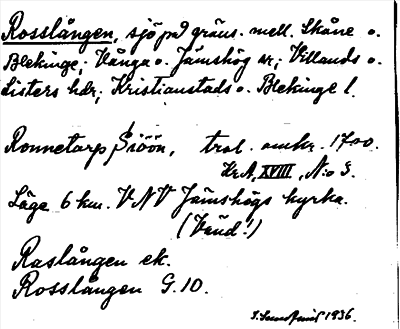 Rosslången, sjö på gräns. mell. Skåne o.
Blekinge; Vånga o. Jämshög sr; Villands o.
Listers hdr; Kristianstads o. Blekinge l.
Ronnetarp Siöön, trol. omkr. 1700.
Kr.A, XVIII, N:o 3.
Läge 6 km. VNV Jämshögs kyrka.
(Vänd!)
Raslången ek.
Rosslången G.10.
1936.